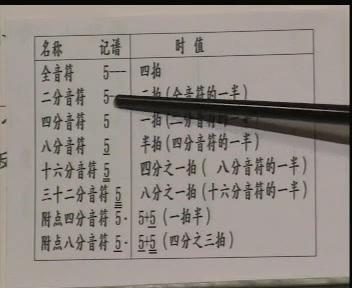 名称 记谱 时值
全音符 5--- 四拍
二分音符 5- 二拍(全音符的一半)
四分音符 5 一拍(二分音符的一半)
八分音符 5 半拍(四分音符的一半)
十六分音符 5 四分之一拍( 八分音符的一半)
三十二分音符 5 八分之一拍(十六分音符的一半)
附点四分音符 5· 5+5(一拍半)
附点八分音符 5· 5+5(四分之三拍)